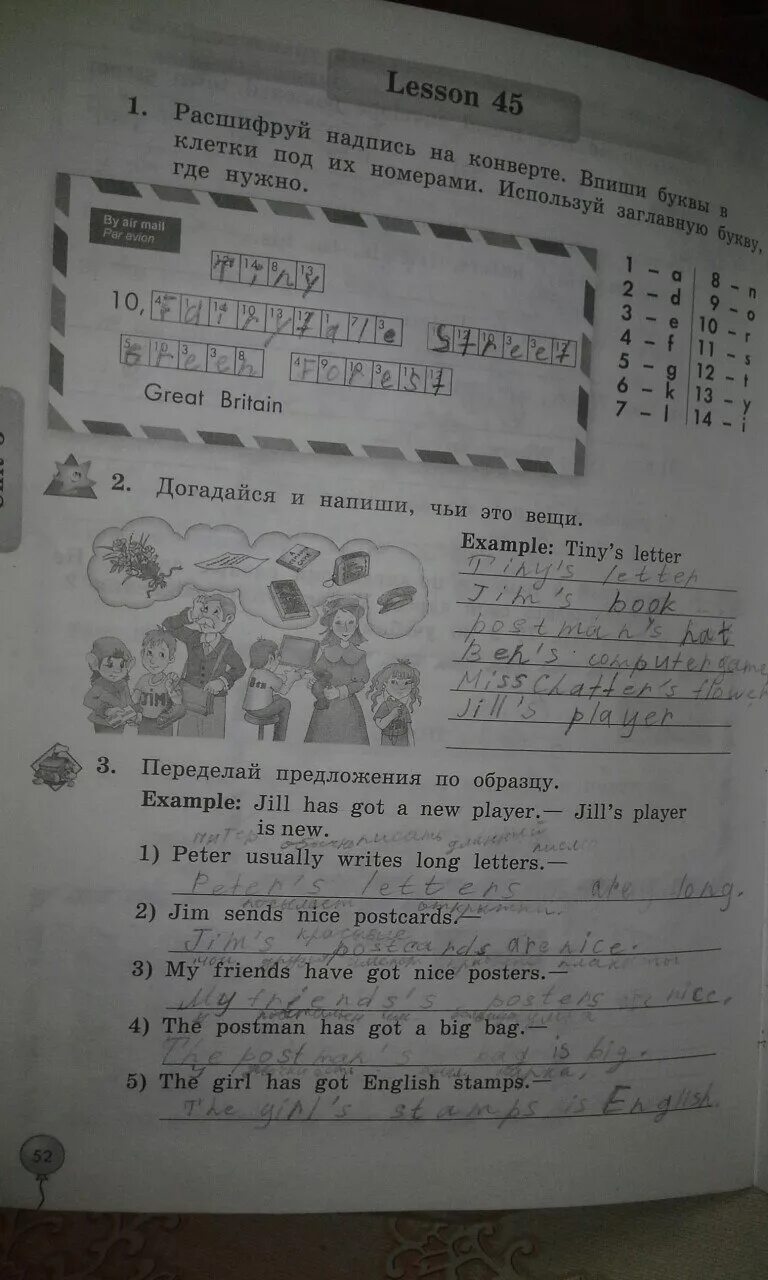 Lesson 45
1. Расшифруй надпись на конверте. Впиши буквы в
клетки под их номерами. Используй заглавную букву,
где нужно.
By air mail
Par avion
12 14 8 13
Tiny
10, 4 1 14 10 13 12 1 7 3
Fairytale
11 12 10 3 3 12
Street
5 10 3 3 8
Green
4 9 10 3 11 12
Forest
Great Britain
1 – a
2 – d
3 – e
4 – f
5 – g
6 – k
7 – l
8 – n
9 – o
10 – r
11 – s
12 – t
13 – y
14 – i
2. Догадайся и напиши, чьи это вещи.
Example: Tiny's letter
Tiny's letter
Jim's book
postman's hat
Ben's computer game
Miss Chatter's flower
Jill's player
JIM
Ben
3. Переделай предложения по образцу.
Example: Jill has got a new player.— Jill's player
is new.
обычно писать длинный
1) Peter usually writes long letters.—
Peter's letters are long.
посылает открытки.
2) Jim sends nice postcards.—
красивые
Jim's postcards are nice.
плакаты
3) My friends have got nice posters.—
My friends's posters are nice.
4) The postman has got a big bag.—
The postman's bag is big.
5) The girl has got English stamps.—
The girl's stamps is English.
52